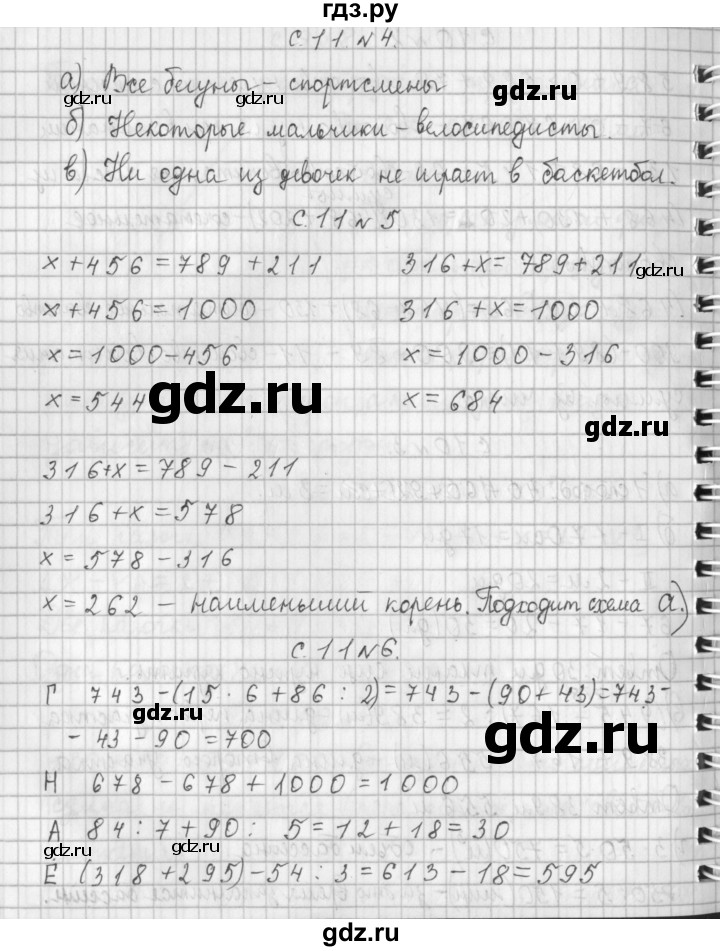 гдз.ру
С. 11 №4.
а) Все бегуны – спортсмены
gdz.ru gdz.ru gdz.ru
б) Некоторые мальчики – велосипедисты.
в) Ни одна из девочек не играет в баскетбол.
С. 11 №5
x + 456 = 789 + 211 316 + x = 789 + 211
gdz.ru
x + 456 = 1000 316 + x = 1000
x = 1000 – 456 x = 1000 – 316
x = 544 x = 684
gdz.ru gdz.ru
316 + x = 789 – 211
316 + x = 578
x = 578 – 316
x = 262 – наименьший корень. Подходит схема а.)
С. 11 №6.
Г 743 – (15 · 6 + 86 : 2) = 743 – (90 + 43) = 743 –
gdz.ru gdz.ru
– 43 – 90 = 700
Н 678 – 678 + 1000 = 1000
А 84 : 7 + 90 : 5 = 12 + 18 = 30
gdz.ru gdz.ru
Е (318 + 295) – 54 : 3 = 613 – 18 = 595